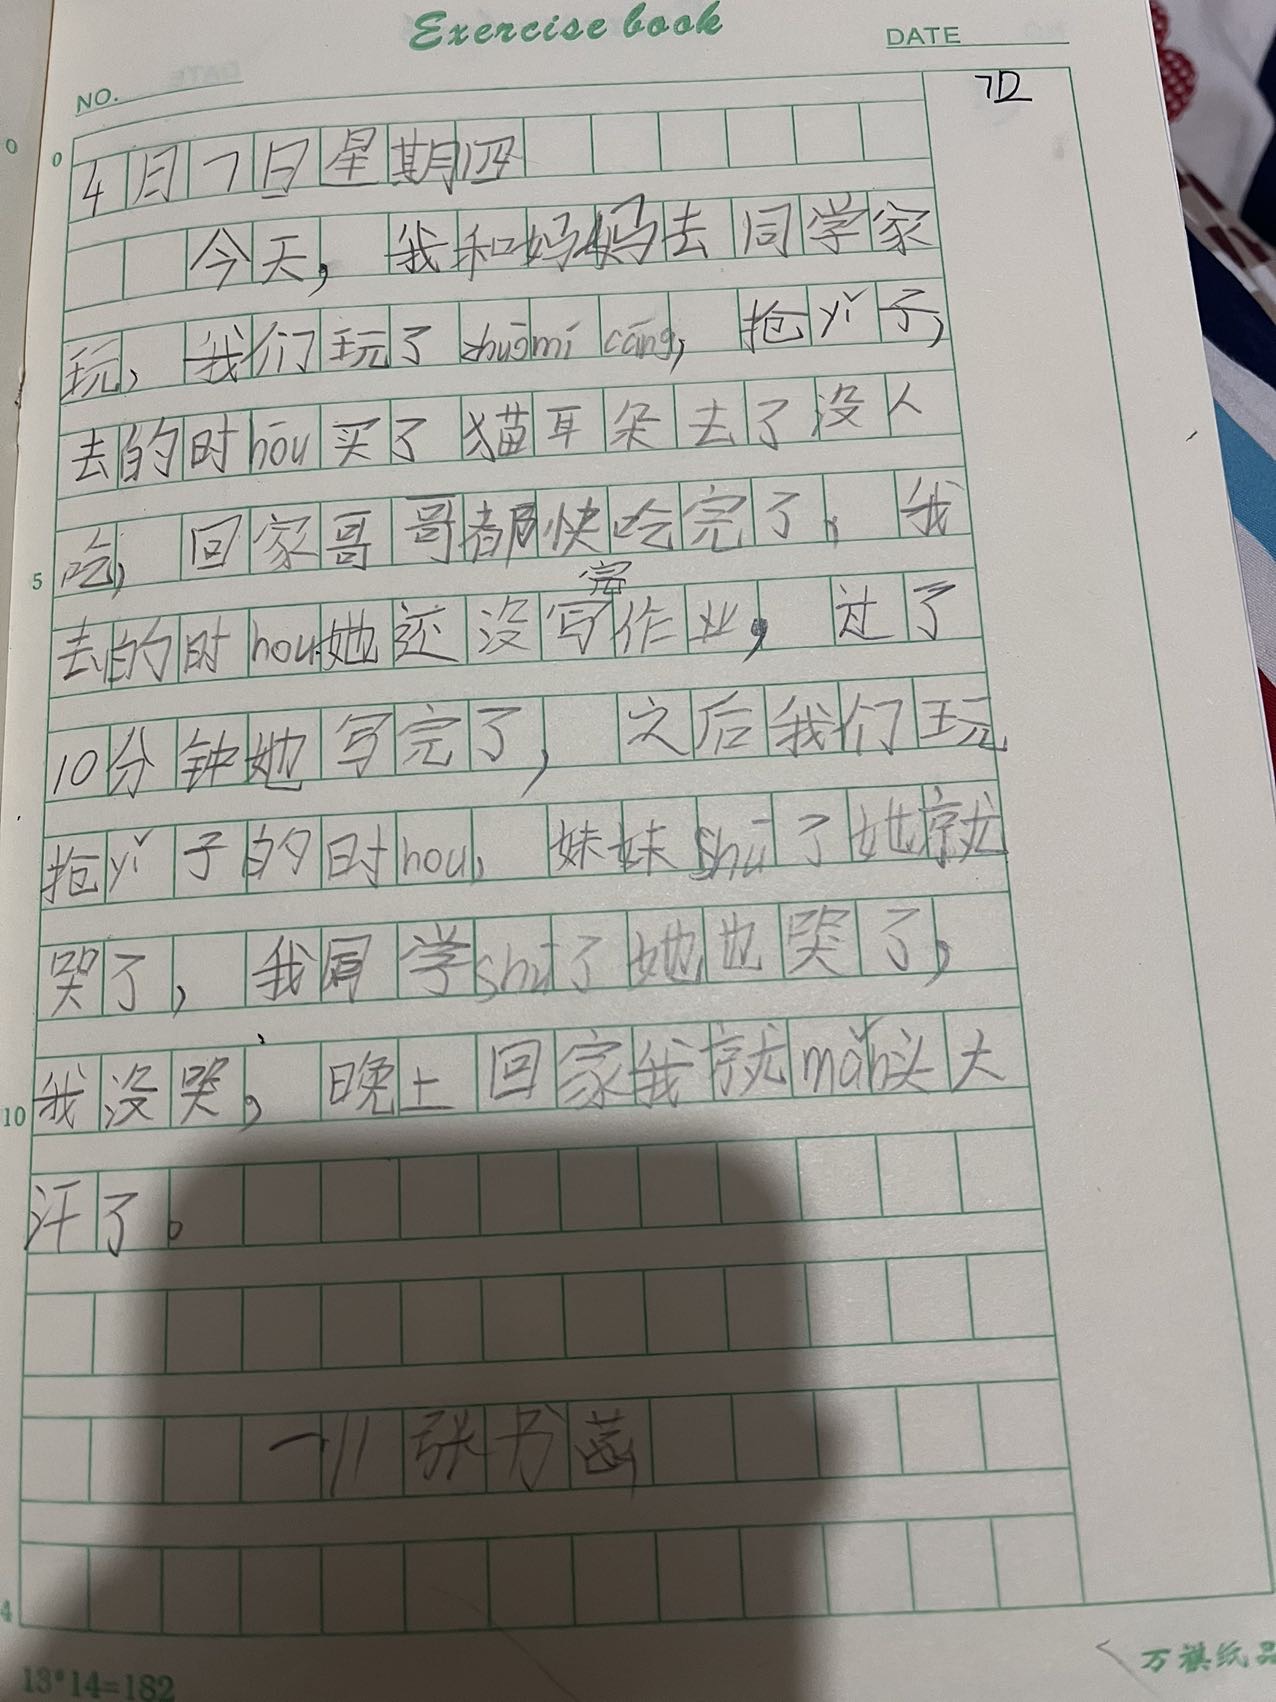 Exercise book
NO.
DATE
7D
4月7日星期四
今天，我和妈妈去同学家
玩，我们玩了zhuōmí cáng，抢yǐ子，
去的时hōu买了猫耳朵去了没人
吃，回家哥哥都快吃完了，我
去的时hou她还没写完作业，过了
10分钟她写完了，之后我们玩
抢yǐ子的时hou，妹妹shū了她就
哭了，我同学shū了她也哭了，
我没哭，晚上回家我就mǎn头大
汗了。
0
0
5
10
4
13*14=182
万祺纸品